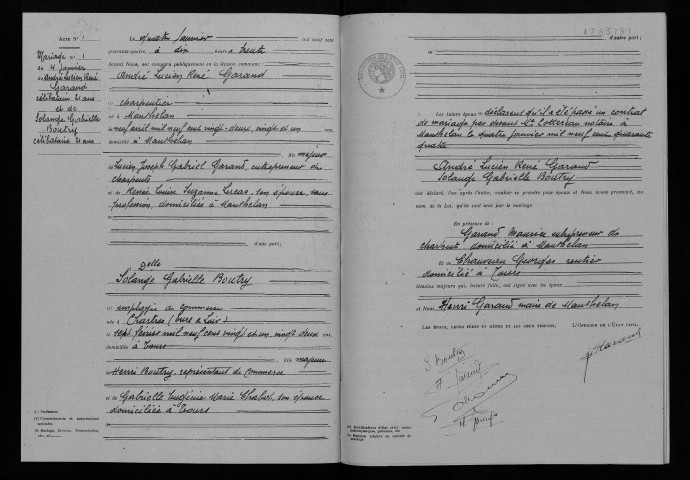 ACTE N° 1
Mariage n° 1
du 4 janvier
de André Lucien René
Garand
célibataire 21 ans
et de
Solange Gabrielle
Boutry
célibataire 21 ans
Le quatre janvier mil neuf cent
quarante-quatre, à dix heures trente
devant Nous, ont comparu publiquement en la Maison commune :
André Lucien René Garand
charpentier
né à Manthelan
le neuf avril mil neuf cent vingt-deux, vingt et un ans
domicilié à Manthelan
fils majeur
de Lucien Joseph Gabriel Garand, entrepreneur de
charpente
et de Renée Louise Suzanne Lucas, son épouse, sans
profession, domiciliés à Manthelan
d'une part ;
Delle
Solange Gabrielle Boutry
employée de commerce
née à Chartres (Eure & Loir)
le sept février mil neuf cent vingt et un, vingt deux ans
domiciliée à Tours
fille majeure
de Henri Boutry, représentant de commerce
et de Gabrielle Eugénie Marie Chabot, son épouse
domiciliés à Tours
d'autre part ;
Les futurs époux déclarent qu'il a été passé un contrat
de mariage par devant Me Lottereau notaire à
Manthelan le quatre janvier mil neuf cent quarante
quatre
André Lucien René Garand
Solange Gabrielle Boutry
ont déclaré, l'un après l'autre, vouloir se prendre pour époux et Nous avons prononcé, au
nom de la Loi, qu'ils sont unis par le mariage.
En présence de :
Garand Maurice entrepreneur de
charpente domicilié à Manthelan
Et de Chauveau Georges rentier
domicilié à Tours
témoins majeurs qui, lecture faite, ont signé avec les époux
et Nous Henri Garand maire de Manthelan
LES ÉPOUX, LEURS PÈRES ET MÈRES ET LES DEUX TÉMOINS,
L'OFFICIER DE L'ÉTAT CIVIL,
S Boutry
Garand